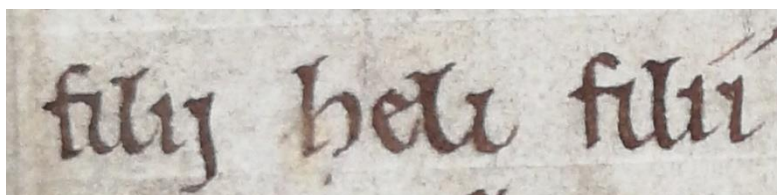 filij heli filii